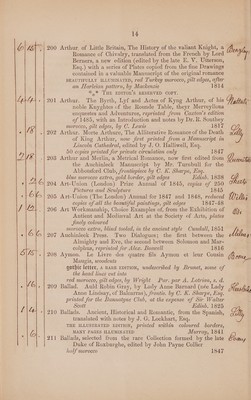 14
200 Arthur of Little Britain, The History of the valiant Knight, a
Romance of Chivalry, translated from the French by Lord
Berners, a new edition (edited by the late E. V. Utterson,
Esq.) with a series of Plates copied from the fine Drawings
contained in a valuable Manuscript of the original romance
BEAUTIFULLY ILLUMINATED, red Turkey morocco, gilt edges, after
an Harleian pattern, by Mackenzie 1814
*** THE EDITOR'S ASSERTED COPY.
201 Arthur. The Byrth, Lyf and Actes of Kyng Arthur, of his
noble Knyghtes of the Rounde Table, theyr Merveyllous
enquestes and Adventures, reprinted from Caxton's edition
of 1485, with an Introduction and notes by Dr. R. Southey
morocco, gilt edges, by C. Lewis 1817
202 Arthur. Morte Arthure, The Alliterative Romance of the Death
of King Arthur, now first printed from a Manuscript in
Lincoln Cathedral, edited by J. O. Halliwell, Esq.
50 copies printed for private circulation only 1847
203 Arthur and Merlin, a Metrical Romance, now first edited from
the Auchinleck Manuscript by Mr. Turnbull for the
Abbotsford Club, frontispiece by C. K. Sharpe, Esq.
blue morocco extra, gold border, gilt edges Edinb. 1838
204 Art-Union (London) Print Annual of 1845, copies of 250
Pictures and Sculpture 1845
205 Art-Union (The London) Annual for 1847 and 1848, reduced
copies of all the beautiful paintings, gilt edges 1847-48
206 Art Workmanship, Choice Examples of from the Exhibition of
Antient and Mediæval Art at the Society of Arts, plates
finely coloured
morocco extra, blind tooled, in the ancient style Cundall, 1851
207 Auchinleck Press. Two Dialogues; the first between the
Almighty and Eve, the second between Solomon and Mar-
colphus, reprinted for Alex. Boswell 1816
208 Aymon. Le Livre des quatre filz Aymon et leur Cousin
Maugis, woodcuts
gothic letter, A RARE EDITION, undescribed by Brunet, some of
the head lines cut into
red morocco, gilt edges, by Wright Par. par A. Lotrian, s. d.
209 Ballad. Auld Robin Grey, by Lady Anne Barnard (née Lady
Anne Lindsay, of Balcarras), frontis. by C. K. Sharpe, Esq.
printed for the Bannatyne Club, at the expense of Sir Walter
Scott Edinb. 1825
210 Ballads. Ancient, Historical and Romantic, from the Spanish,
translated with notes by J. G. Lockhart, Esq.
THE ILLUSTRATED EDITION, printed within coloured borders,
MANY PAGES ILLUMINATED Murray, 1841
211 Ballads, selected from the rare Collection formed by the late
Duke of Roxburghe, edited by John Payne Collier
half morocco 1847